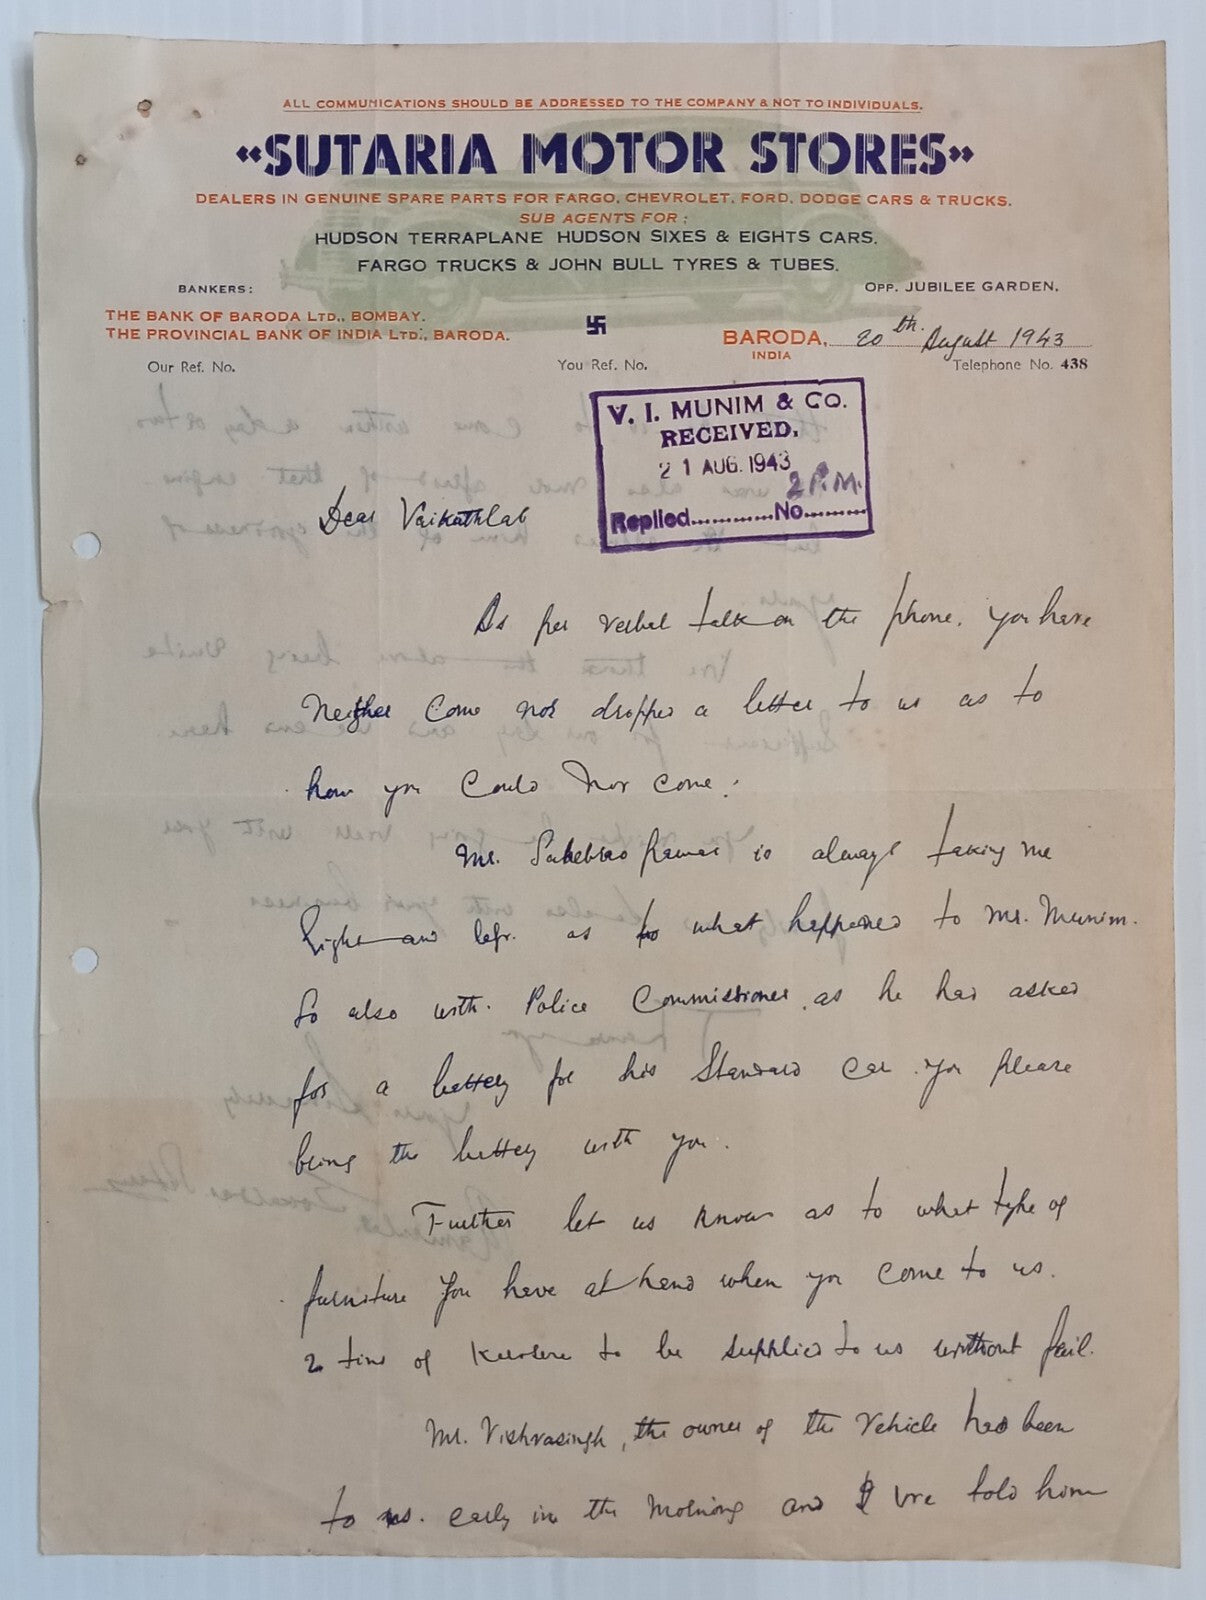 ALL COMMUNICATIONS SHOULD BE ADDRESSED TO THE COMPANY & NOT TO INDIVIDUALS.
«SUTARIA MOTOR STORES»
DEALERS IN GENUINE SPARE PARTS FOR FARGO, CHEVROLET, FORD, DODGE CARS & TRUCKS.
SUB AGENTS FOR :
HUDSON TERRAPLANE HUDSON SIXES & EIGHTS CARS.
FARGO TRUCKS & JOHN BULL TYRES & TUBES.
BANKERS:
THE BANK OF BARODA LTD., BOMBAY.
THE PROVINCIAL BANK OF INDIA LTD., BARODA.
OPP. JUBILEE GARDEN.
BARODA, 20th August 1943
INDIA
Our Ref. No.
You Ref. No.
Telephone No. 438
V. I. MUNIM & CO.
RECEIVED.
21 AUG. 1943
2 P.M.
Replied............No..........
Dear Vaikuthlal
As per verbal talk on the phone. You have
neither come nor dropped a letter to us as to
how you could not come.
Mr. Sahebrao Pawar is always taking me
right and left. as to what happened to Mr. Munim.
So also with Police Commissioner, as he has asked
for a battery for his Standard car. You please
bring the battery with you.
Further let us know as to what type of
furniture you have at hand when you come to us.
2 tins of to be supplied to us without fail.
Mr. Vishvasingh, the owner of the vehicle has been
to us. early in the morning and we told him